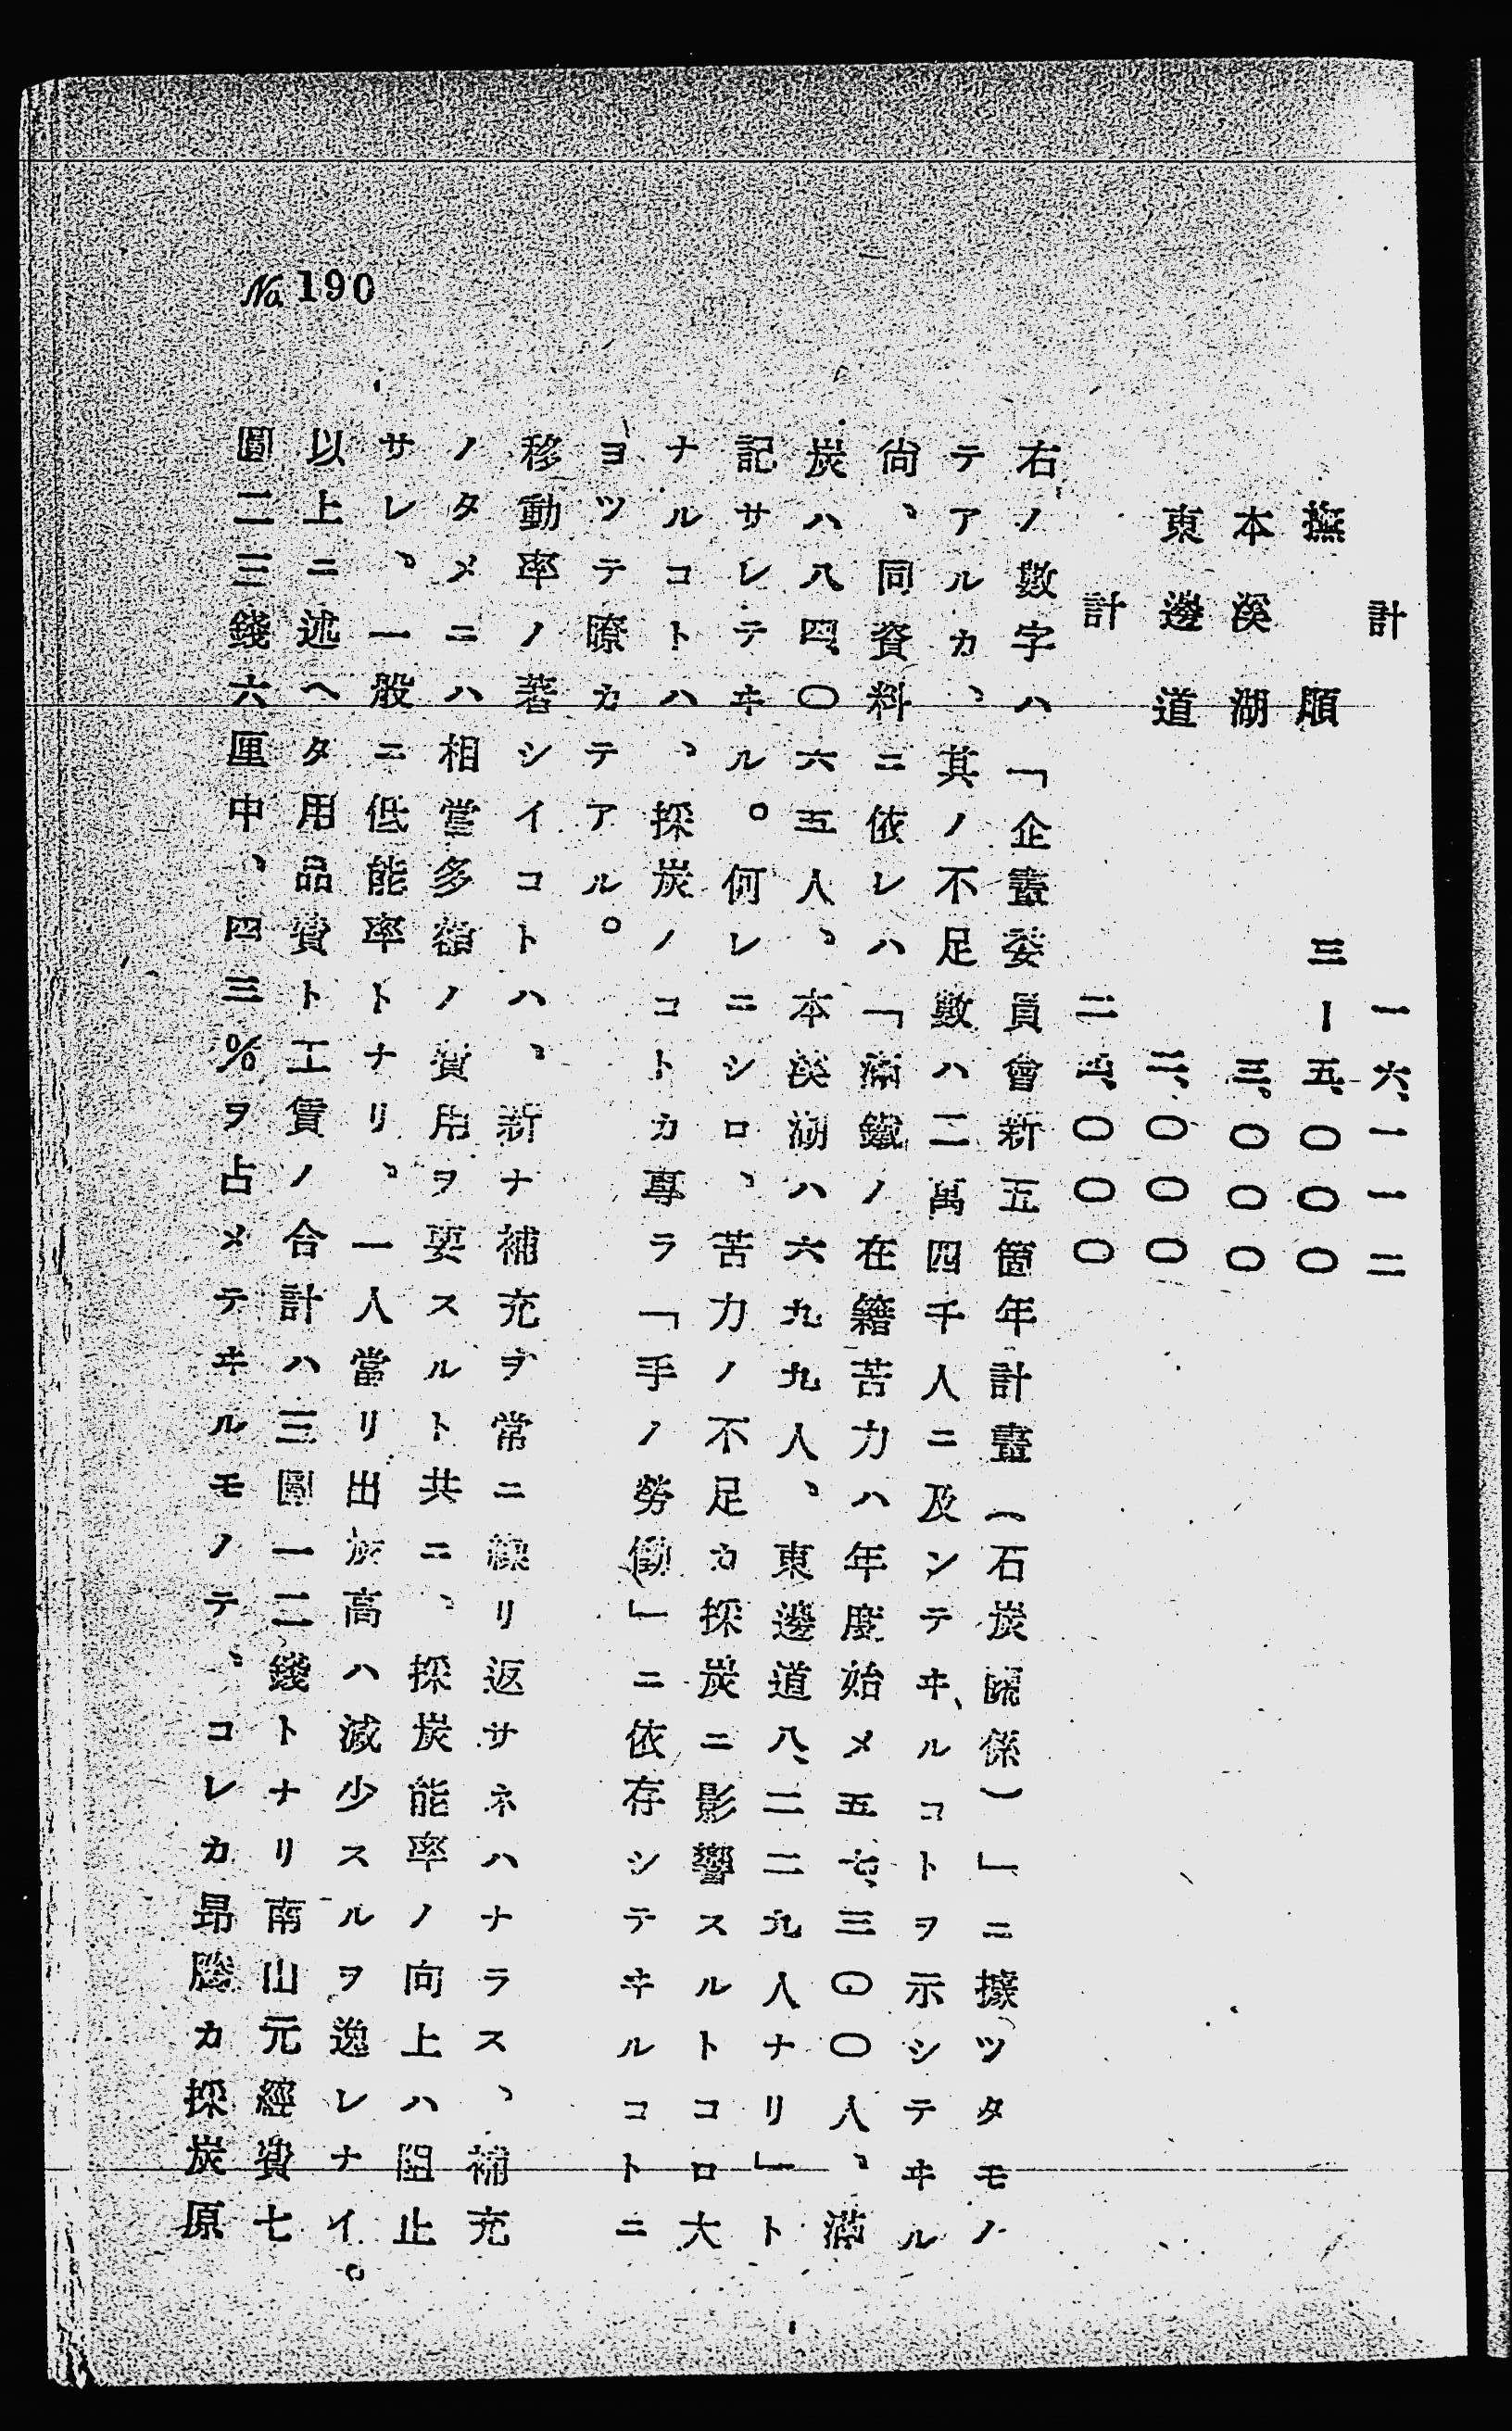 計　一六、一一二
撫順　三ー五、〇〇〇
本溪湖　三、〇〇〇
東邊道　二、〇〇〇
計　二四、〇〇〇
右ノ數字ハ「企畫委員會新五箇年計畫（石炭關係）」ニ據ツタモノ
テアルカ、其ノ不足數ハ二萬四千人ニ及ンテヰルコトヲ示シテヰル
尙、同資料ニ依レハ「滿鐵ノ在籍苦力ハ年度始メ五七、三〇〇人、滿
炭ハ八四、〇六五人、本溪湖ハ六九九人、東邊道八、二二九人ナリ」ト
記サレテヰル。何レニシロ、苦力ノ不足カ採炭ニ影響スルトコロ大
ナルコトハ、採炭ノコトカ專ラ「手ノ勞働」ニ依存シテヰルコトニ
ヨツテ瞭カテアル。
移動率ノ著シイコトハ、新ナ補充ヲ常ニ繰リ返サネハナラス、補充
ノタメニハ相當多額ノ費用ヲ要スルト共ニ、採炭能率ノ向上ハ阻止
サレ、一般ニ低能率トナリ、一人當リ出炭高ハ減少スルヲ逸レナイ。
以上ニ述ヘタ用品費ト工賃ノ合計ハ三圓一二錢トナリ南山元經費七
圓二三錢六厘中、四三％ヲ占メテヰルモノテ、コレカ昂騰カ採炭原
№190